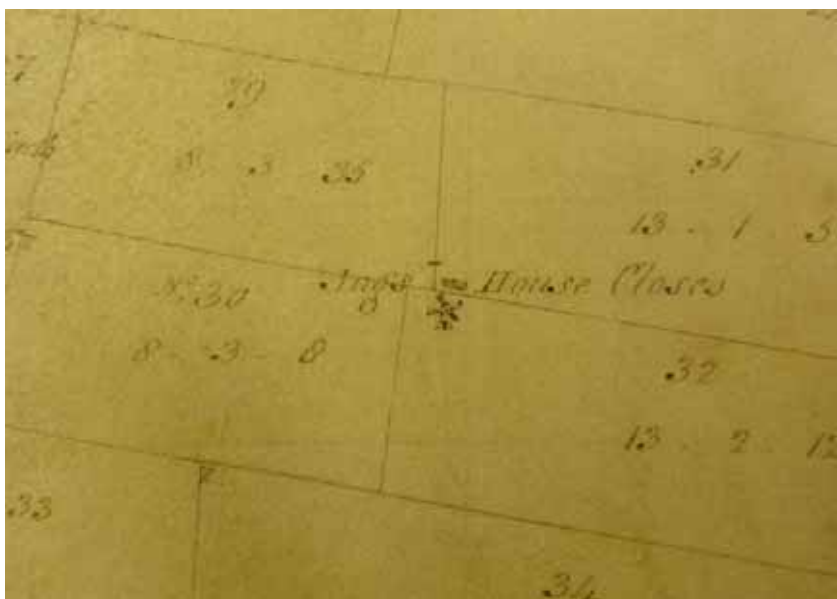 29
8 - 3 - 35
31
13 - 1 - 3
Ings House Closes
No. 30
8 - 3 - 0
32
13 - 2 - 12
33
34